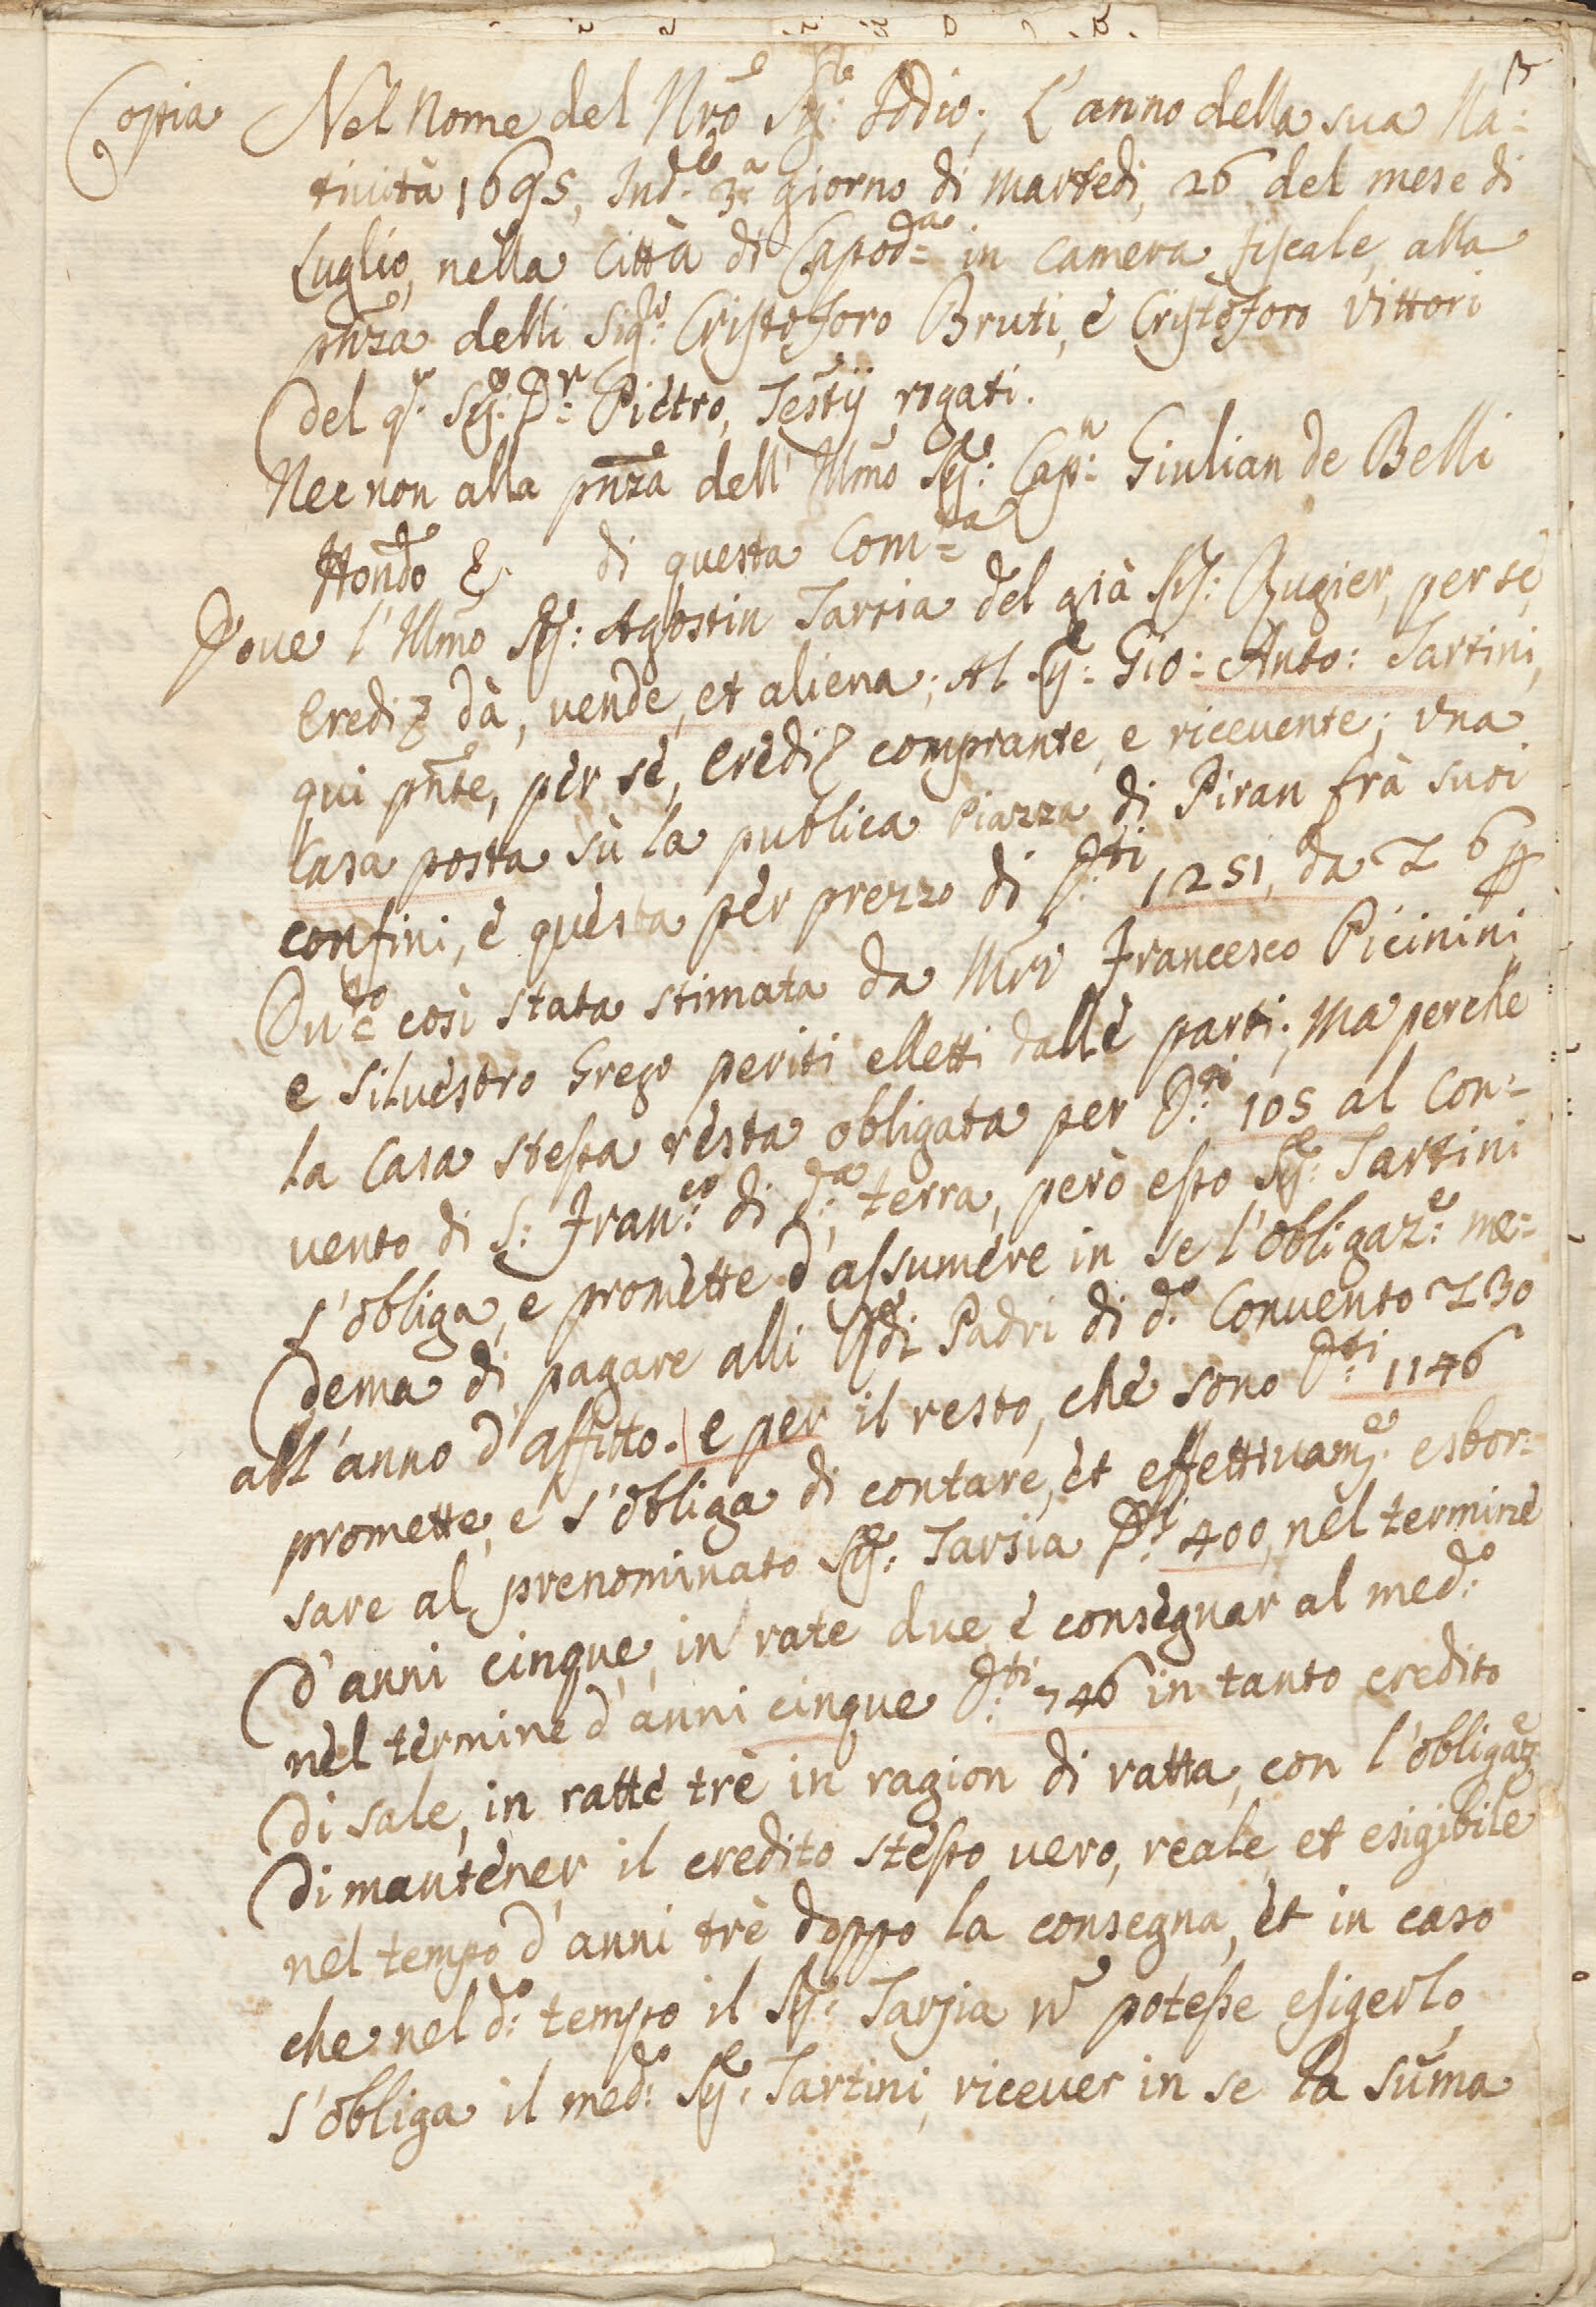 3
Copia Nel Nome del Nrō Sig.re Iddio; L'anno della sua Na=
tiuità 1695, Ind.e 3.a giorno di martedi, 26 del mese di
Luglio, nella Città di Capod.a in camera fiscale, alla
pñza delli Sig.ri Cristoforo Bruti, è Cristoforo Vittori
del q.m Sig.r D.r Pietro, Testij rogati.
Nec non alla pñza dell' Illmo Sig.r Cap.n Giulian de Belli
Hondo & di questa Com.ta
Doue l'Illmo Sig.r Agostin Tarsia del già Sig.r Rugier, per sè,
Eredi & dà, vende, et aliena; Al Sig.r Gio: Anto: Tartini,
qui pñte, per sè, Eredi & comprante, e riceuente; vna
Casa posta sù la publica Piazza di Piran frà suoi
confini, è questa per prezzo di D.ti 1251, da L 6 p
Du.to così stata stimata da Mri Francesco Picinini,
e Siluestro Grego periti elletti dalle parti; Ma perche
la Casa stessa resta obligata per D.ti 105 al Con=
uento di S: Fran.co di d.a terra, però esso Sig.r Tartini
s'obliga, e promette d'assumere in se l'obligaz.e me=
dema di pagare alli Rdi Padri di d.o Conuento L 30
all'anno d'affitto. e per il resto, che sono D.ti 1146
promette, e s'obliga di contare, et effettiuam.e esbor=
sare al prenominato Sig.r Tarsia D.ti 400, nel termine
d'anni cinque, in rate due, è consegnar al med.o
nel termine d'anni cinque D.ti 746 in tanto credito
di sale, in ratte trè in ragion di ratta, con l'obligaz.e
di mantener il credito stesso vero, reale, et esigibile
nel tempo d'anni trè doppo la consegna, et in caso
che nel d.o tempo il Sig.r Tarsia ñ potesse esigerlo,
s'obliga il med.o Sig.r Tartini, riceuer in se la sum̃a